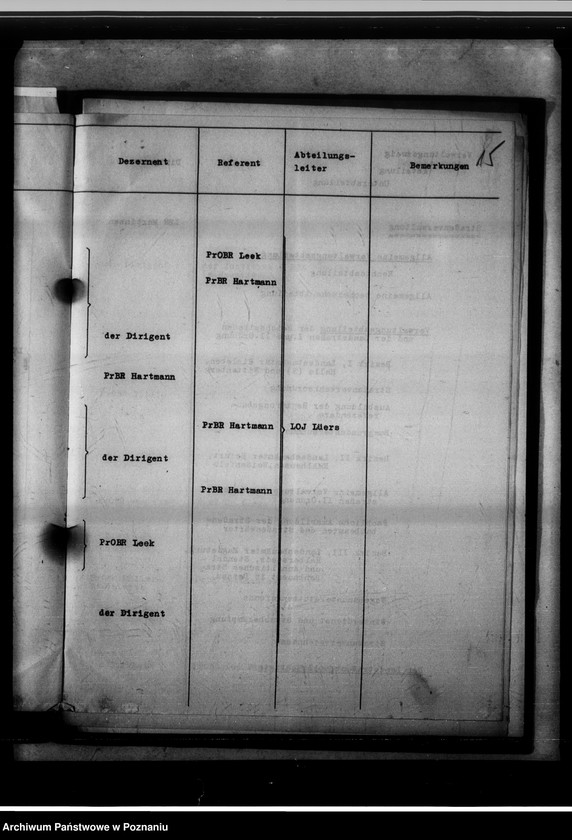 15
Dezernent Referent Abteilungs-
leiter Bemerkungen
PrOBR Leek
PrBR Hartmann
der Dirigent
PrBR Hartmann
PrBR Hartmann LOJ Lüers
der Dirigent
PrBR Hartmann
PrOBR Leek
der Dirigent
Archiwum Państwowe w Poznaniu